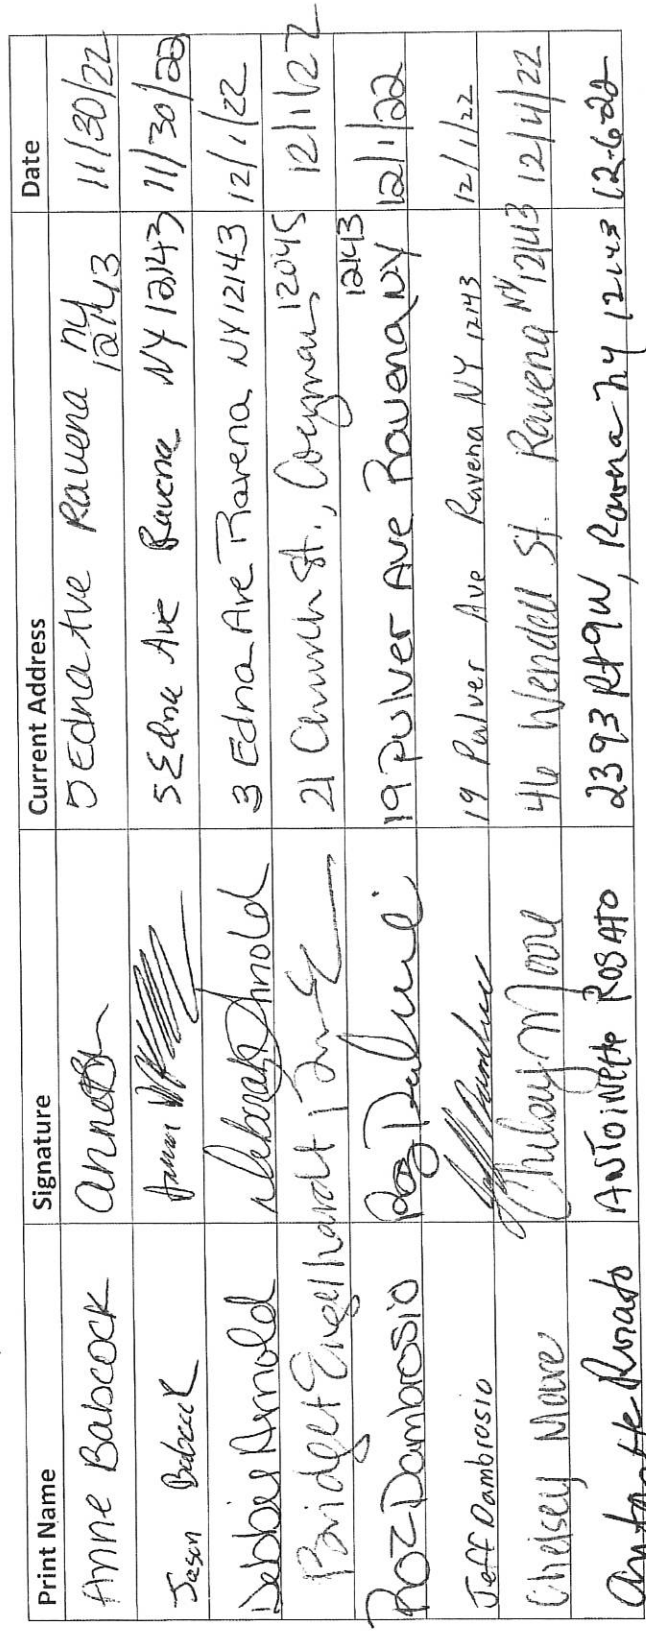 Print Name Signature Current Address Date
Anne Babcock 5 Edna Ave Ravena ny 12143 11/30/22
Jason Babcock 5 Edna Ave Ravena NY 12143 11/30/22
Debbie Arnold Deborah Arnold 3 Edna Ave Ravena, NY 12143 12/1/22
Bridget Engelhardt 21 Church St., Coeymans 12045 12/1/22
Roz Dambrosio Roz 19 Pulver Ave Ravena NY 12143 12/1/22
Jeff Dambrosio 19 Pulver Ave Ravena NY 12143 12/1/22
Chelsey Moore Chelsey Moore 46 Wendell St. Ravena NY 12143 12/4/22
Antoinette Rosato ANTOINETTE ROSATO 2393 Rt 9W, Ravena ny 12143 12-6-22